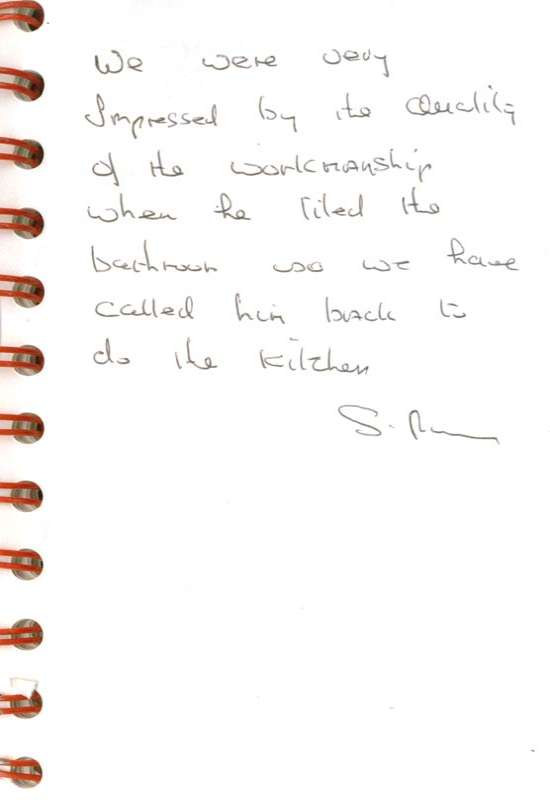 We were very
Impressed by the Quality
of the workmanship
when he tiled the
bathroom so we have
called him back to
do the kitchen
S.